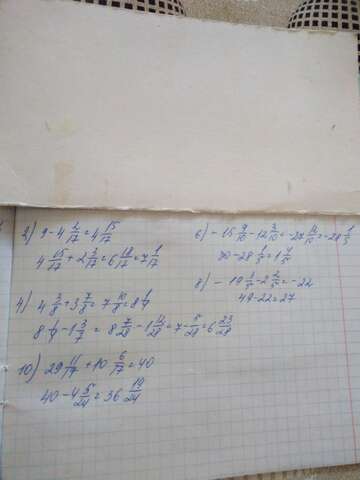 2) 9 - 4 2/17 = 4 15/17
4 15/17 + 2 3/17 = 6 18/17 = 7 1/17
4) 4 3/8 + 3 7/8 = 7 10/8 = 8 1/4
8 1/4 - 1 3/7 = 8 7/28 - 1 12/28 = 7 - 5/28 = 6 23/28
10) 29 11/17 + 10 6/17 = 40
40 - 4 5/24 = 36 19/24
6) - 15 9/10 - 12 3/10 = - 27 12/10 = - 28 1/5
30 - 28 1/5 = 1 4/5
8) - 19 - 2 = - 22
49 - 22 = 27